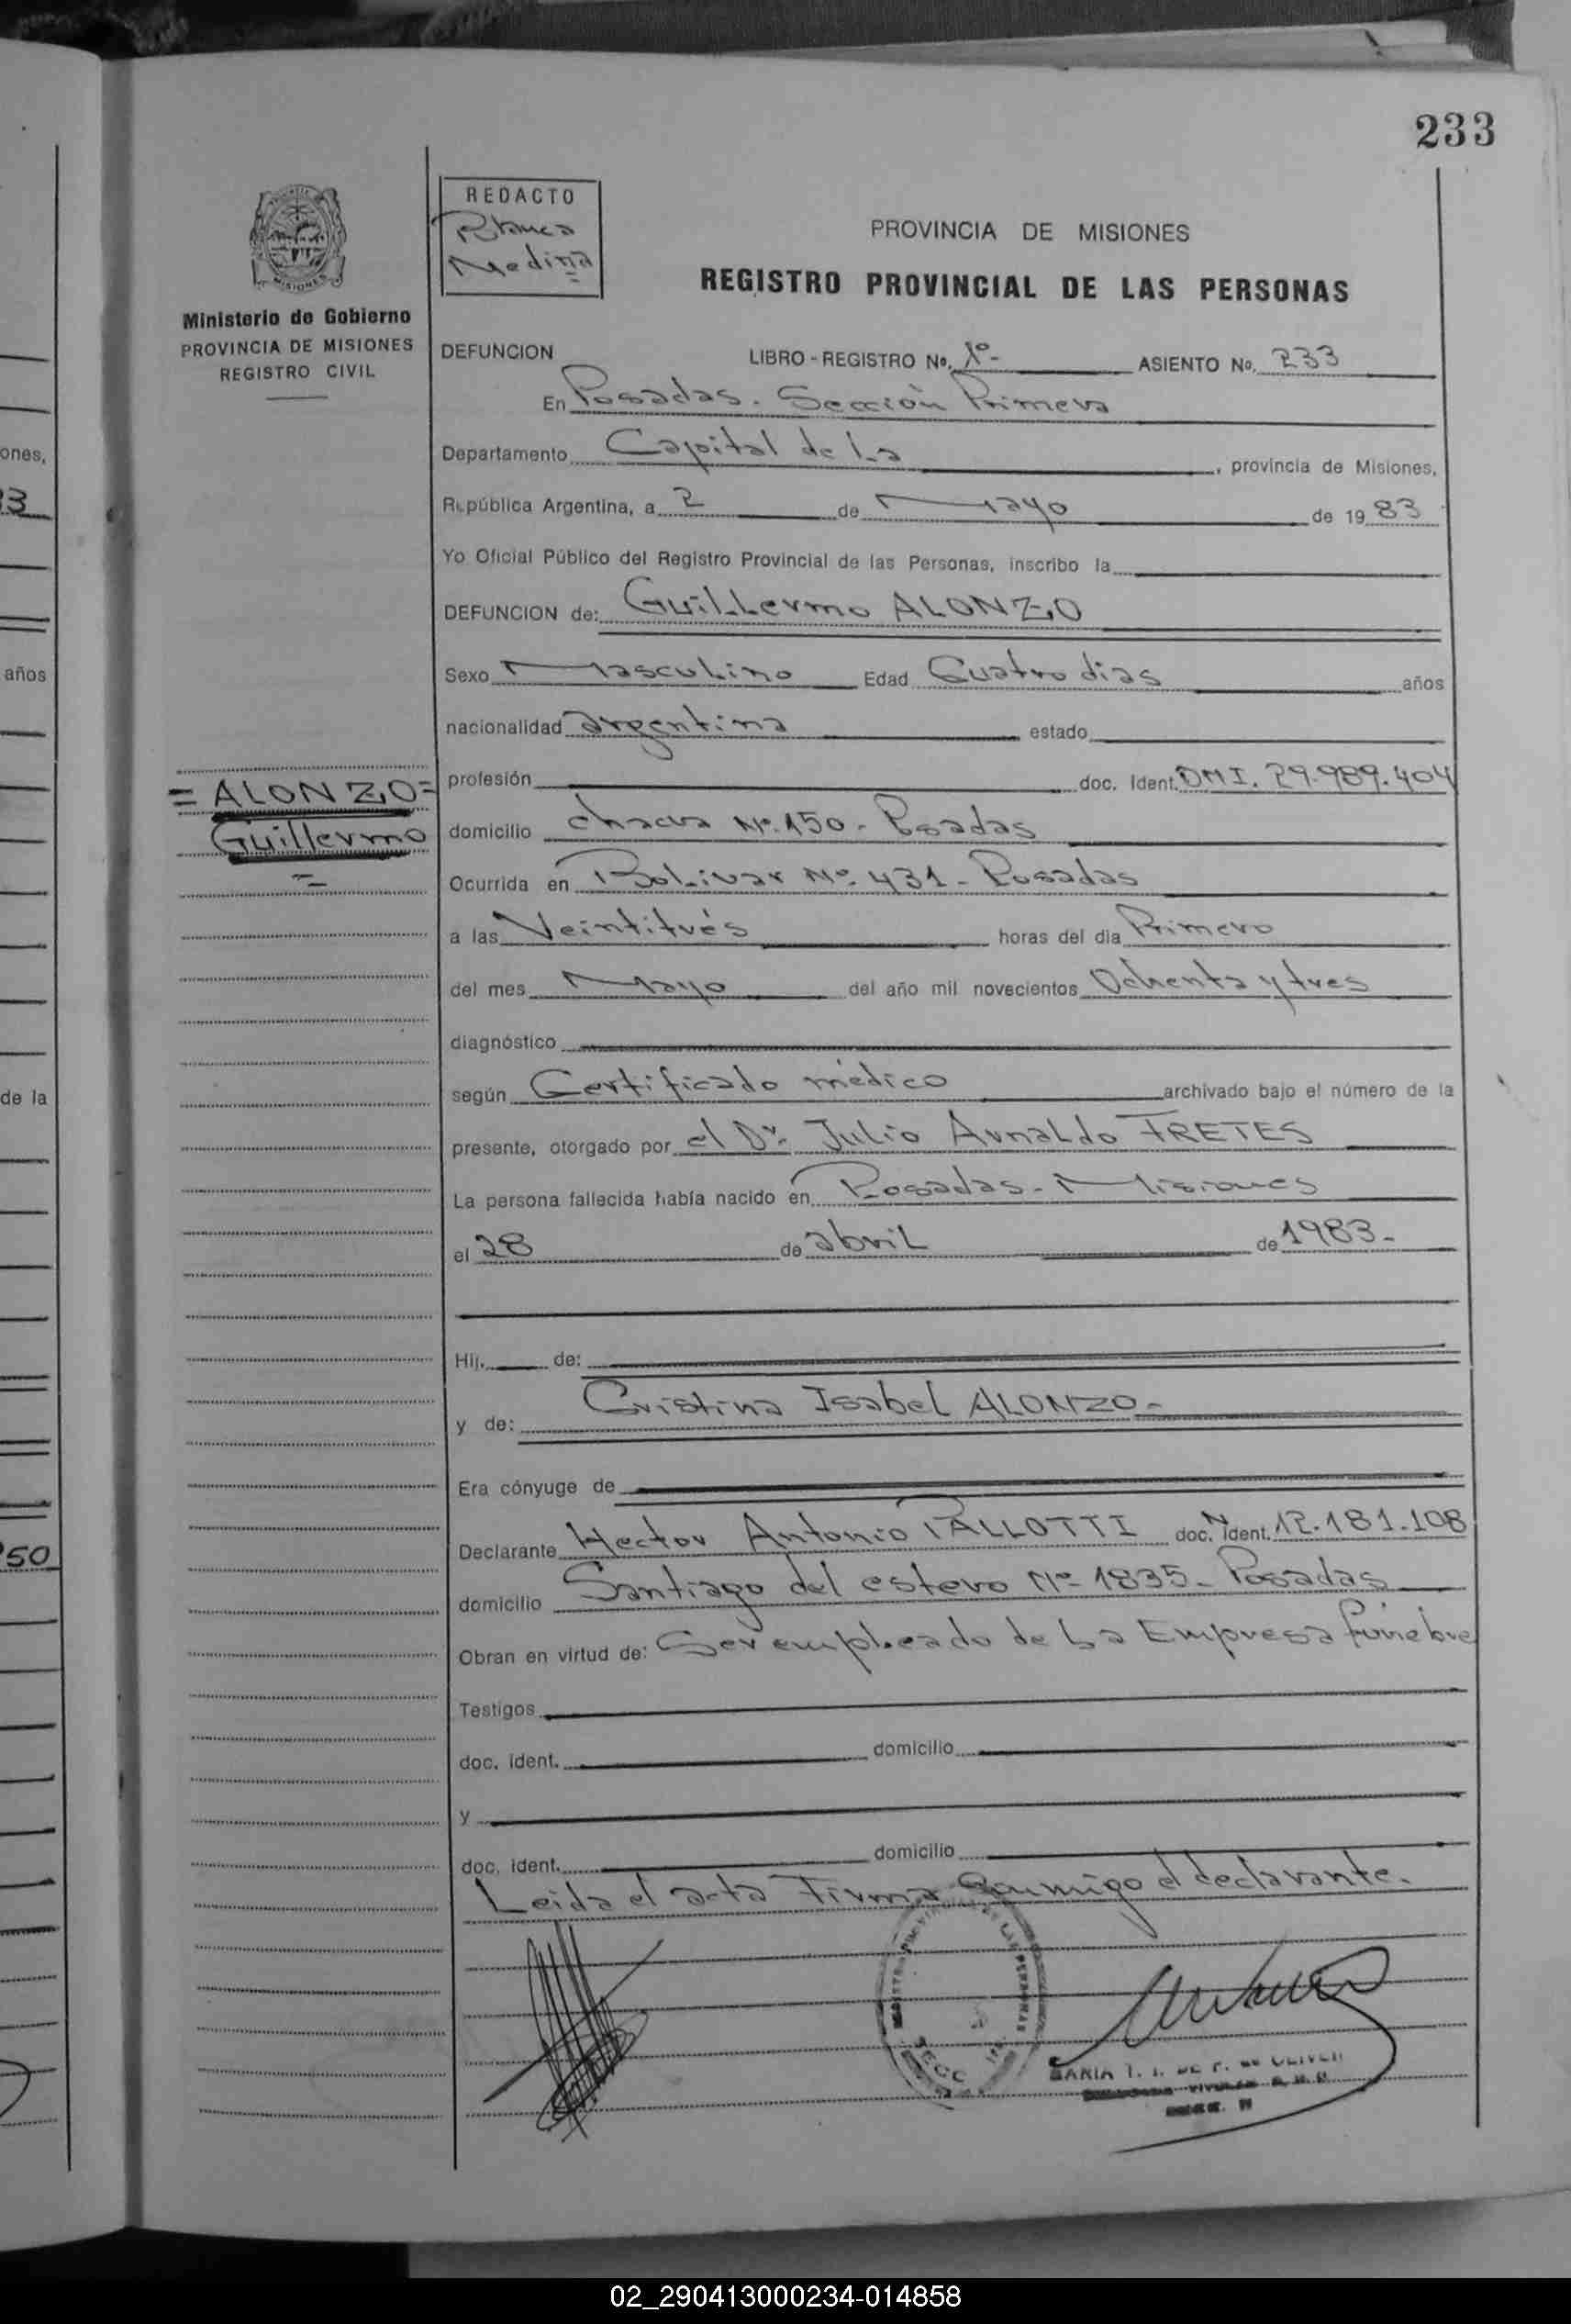 233
REDACTO
Blanca
Medina
MISIONES
Ministerio de Gobierno
PROVINCIA DE MISIONES
REGISTRO CIVIL
PROVINCIA DE MISIONES
REGISTRO PROVINCIAL DE LAS PERSONAS
DEFUNCION LIBRO - REGISTRO No. 1º- ASIENTO No. 233
En Posadas. Sección Primera
Departamento Capital de La , provincia de Misiones,
República Argentina, a 2 de Mayo de 1983
Yo Oficial Público del Registro Provincial de las Personas, inscribo la
DEFUNCION de: Guillermo ALONZO
Sexo Masculino Edad Cuatro dias años
nacionalidad argentina estado
profesión doc. Ident. DNI. 29.989.404
= ALONZO =
Guillermo
=
domicilio chacra Nº.150- Posadas
Ocurrida en Bolivar Nº. 431- Posadas
a las Veintitrés horas del dia Primero
del mes Mayo del año mil novecientos Ochenta y tres
diagnóstico
según Certificado médico archivado bajo el número de la
presente, otorgado por el Dr. Julio Arnaldo FRETES
La persona fallecida había nacido en Posadas- Misiones
el 28 de abril de 1983-
Hij. de:
y de: Cristina Isabel ALONZO-
Era cónyuge de
Declarante Hector Antonio PALLOTTI doc. Ident. N 12.181.108
domicilio Santiago del estero Nº- 1835- Posadas
Obran en virtud de: Ser empleado de La Empresa fúnebre
Testigos
doc. ident. domicilio
y
doc. ident. domicilio
Leida el acta Firma Conmigo el declarante.
ones,
3
años
de la
50
02_290413000234-014858